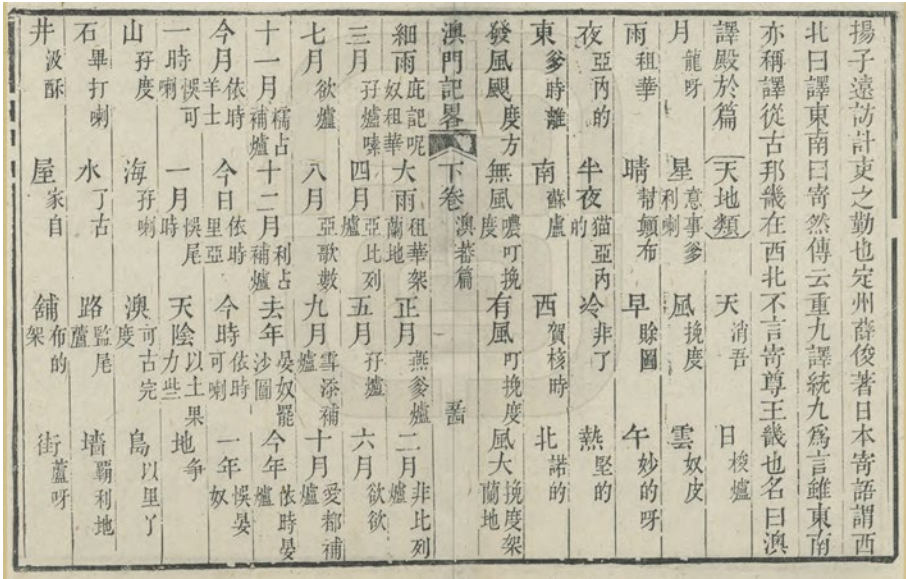 揚子遠訪計吏之勤也定州薛俊著日本寄語謂西
北曰譯東南曰寄然傳云重九譯統九爲言雖東南
亦稱譯從古邦畿在西北不言寄尊王畿也名曰澳
譯殿於篇 天地類 天 消吾 日 梭爐
月 龍呀 星 意事爹利喇 風 挽度 雲 奴皮
雨 租華 晴 幫顛布 早 賒圖 午 妙的呀
夜 亞內的 半夜 猫亞內的 冷 非了 熱 堅的
東 爹時離 南 蘇盧 西 賀核時 北 諾的
發風颶 度方 無風 噥叮挽度 有風 叮挽度 風大 挽度架蘭地
澳門記畧 下卷 澳蕃篇
細雨 庇記呢奴租華 大雨 租華架蘭地 正月 燕爹爐 二月 非比列爐
三月 孖爐嗉 四月 亞比列爐 五月 孖爐 六月 欲欲
七月 欲爐 八月 亞歌數 九月 雪添補爐 十月 愛都補爐
十一月 糯占補爐 十二月 利占補爐 去年 晏奴罷沙圖 今年 依時晏爐
今月 依時羊士 今日 依時里亞 今時 依時可喇 一年 悞晏奴
一時 悞可喇 一月 悞尾時 天陰 以土果力些 地 爭
山 孖度 海 孖喇 澳 可古完度 島 以里丫
石 畢打喇 水 了古 路 監尾蘆 墻 覇利地
井 汲酥 屋 家自 舖 布的架 街 蘆呀